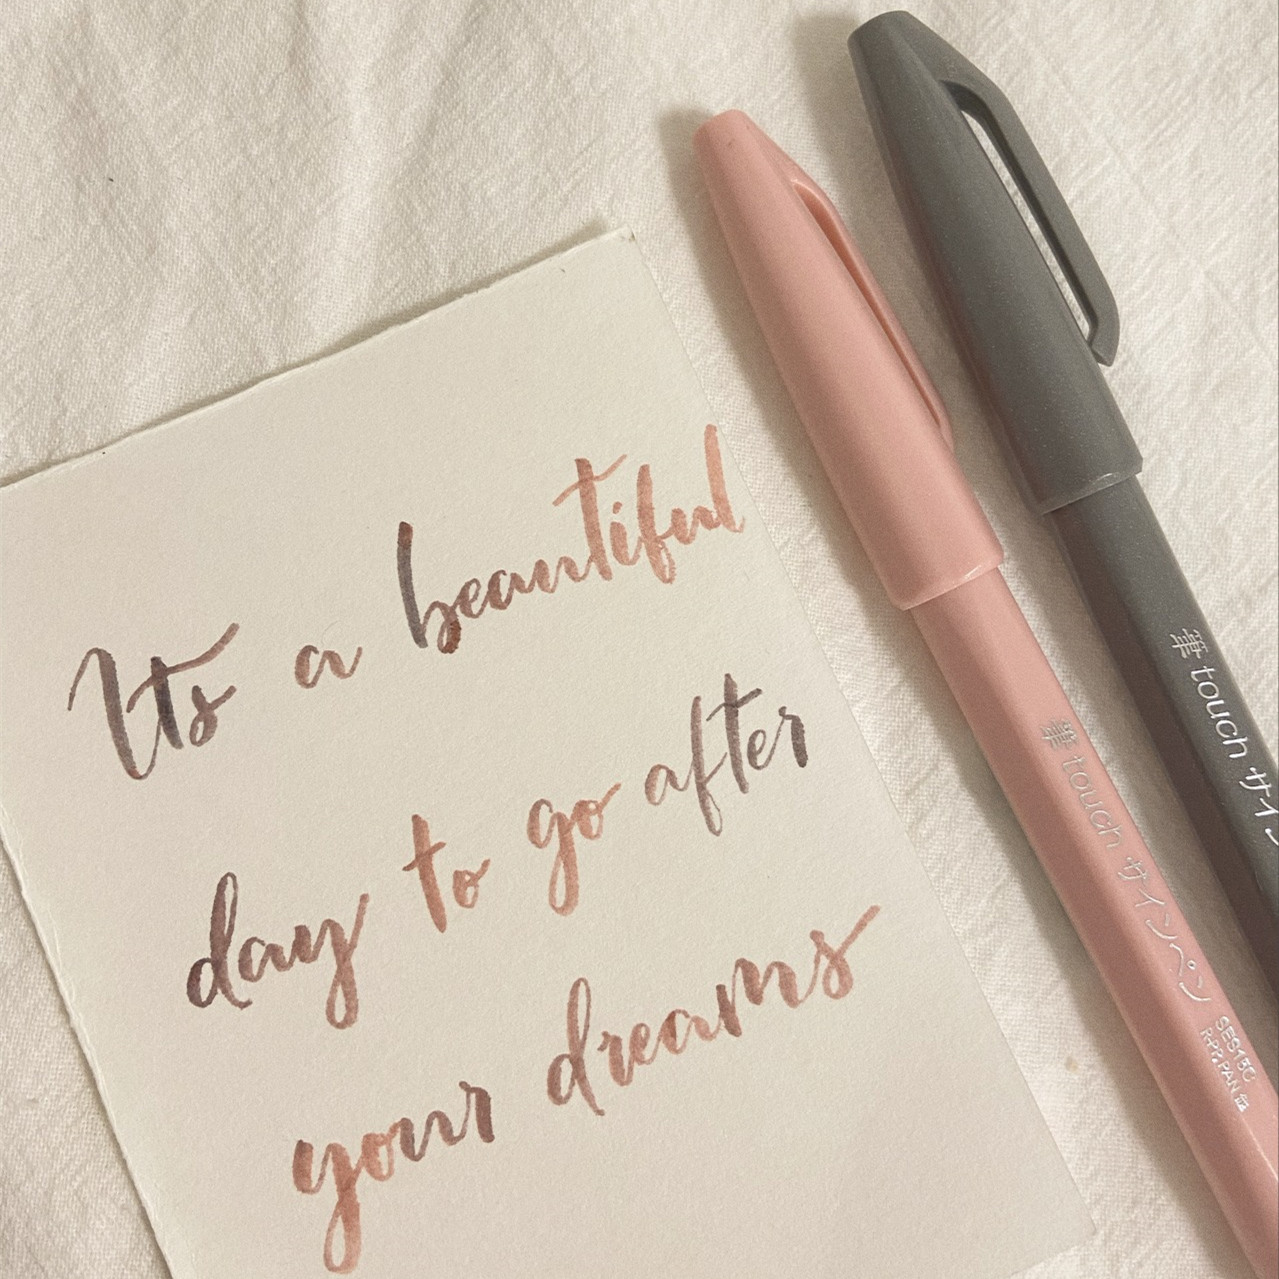 Its a beautiful
day to go after
your dreams
筆 touch サイン
筆 touch サインペン
SES15C
JAPAN